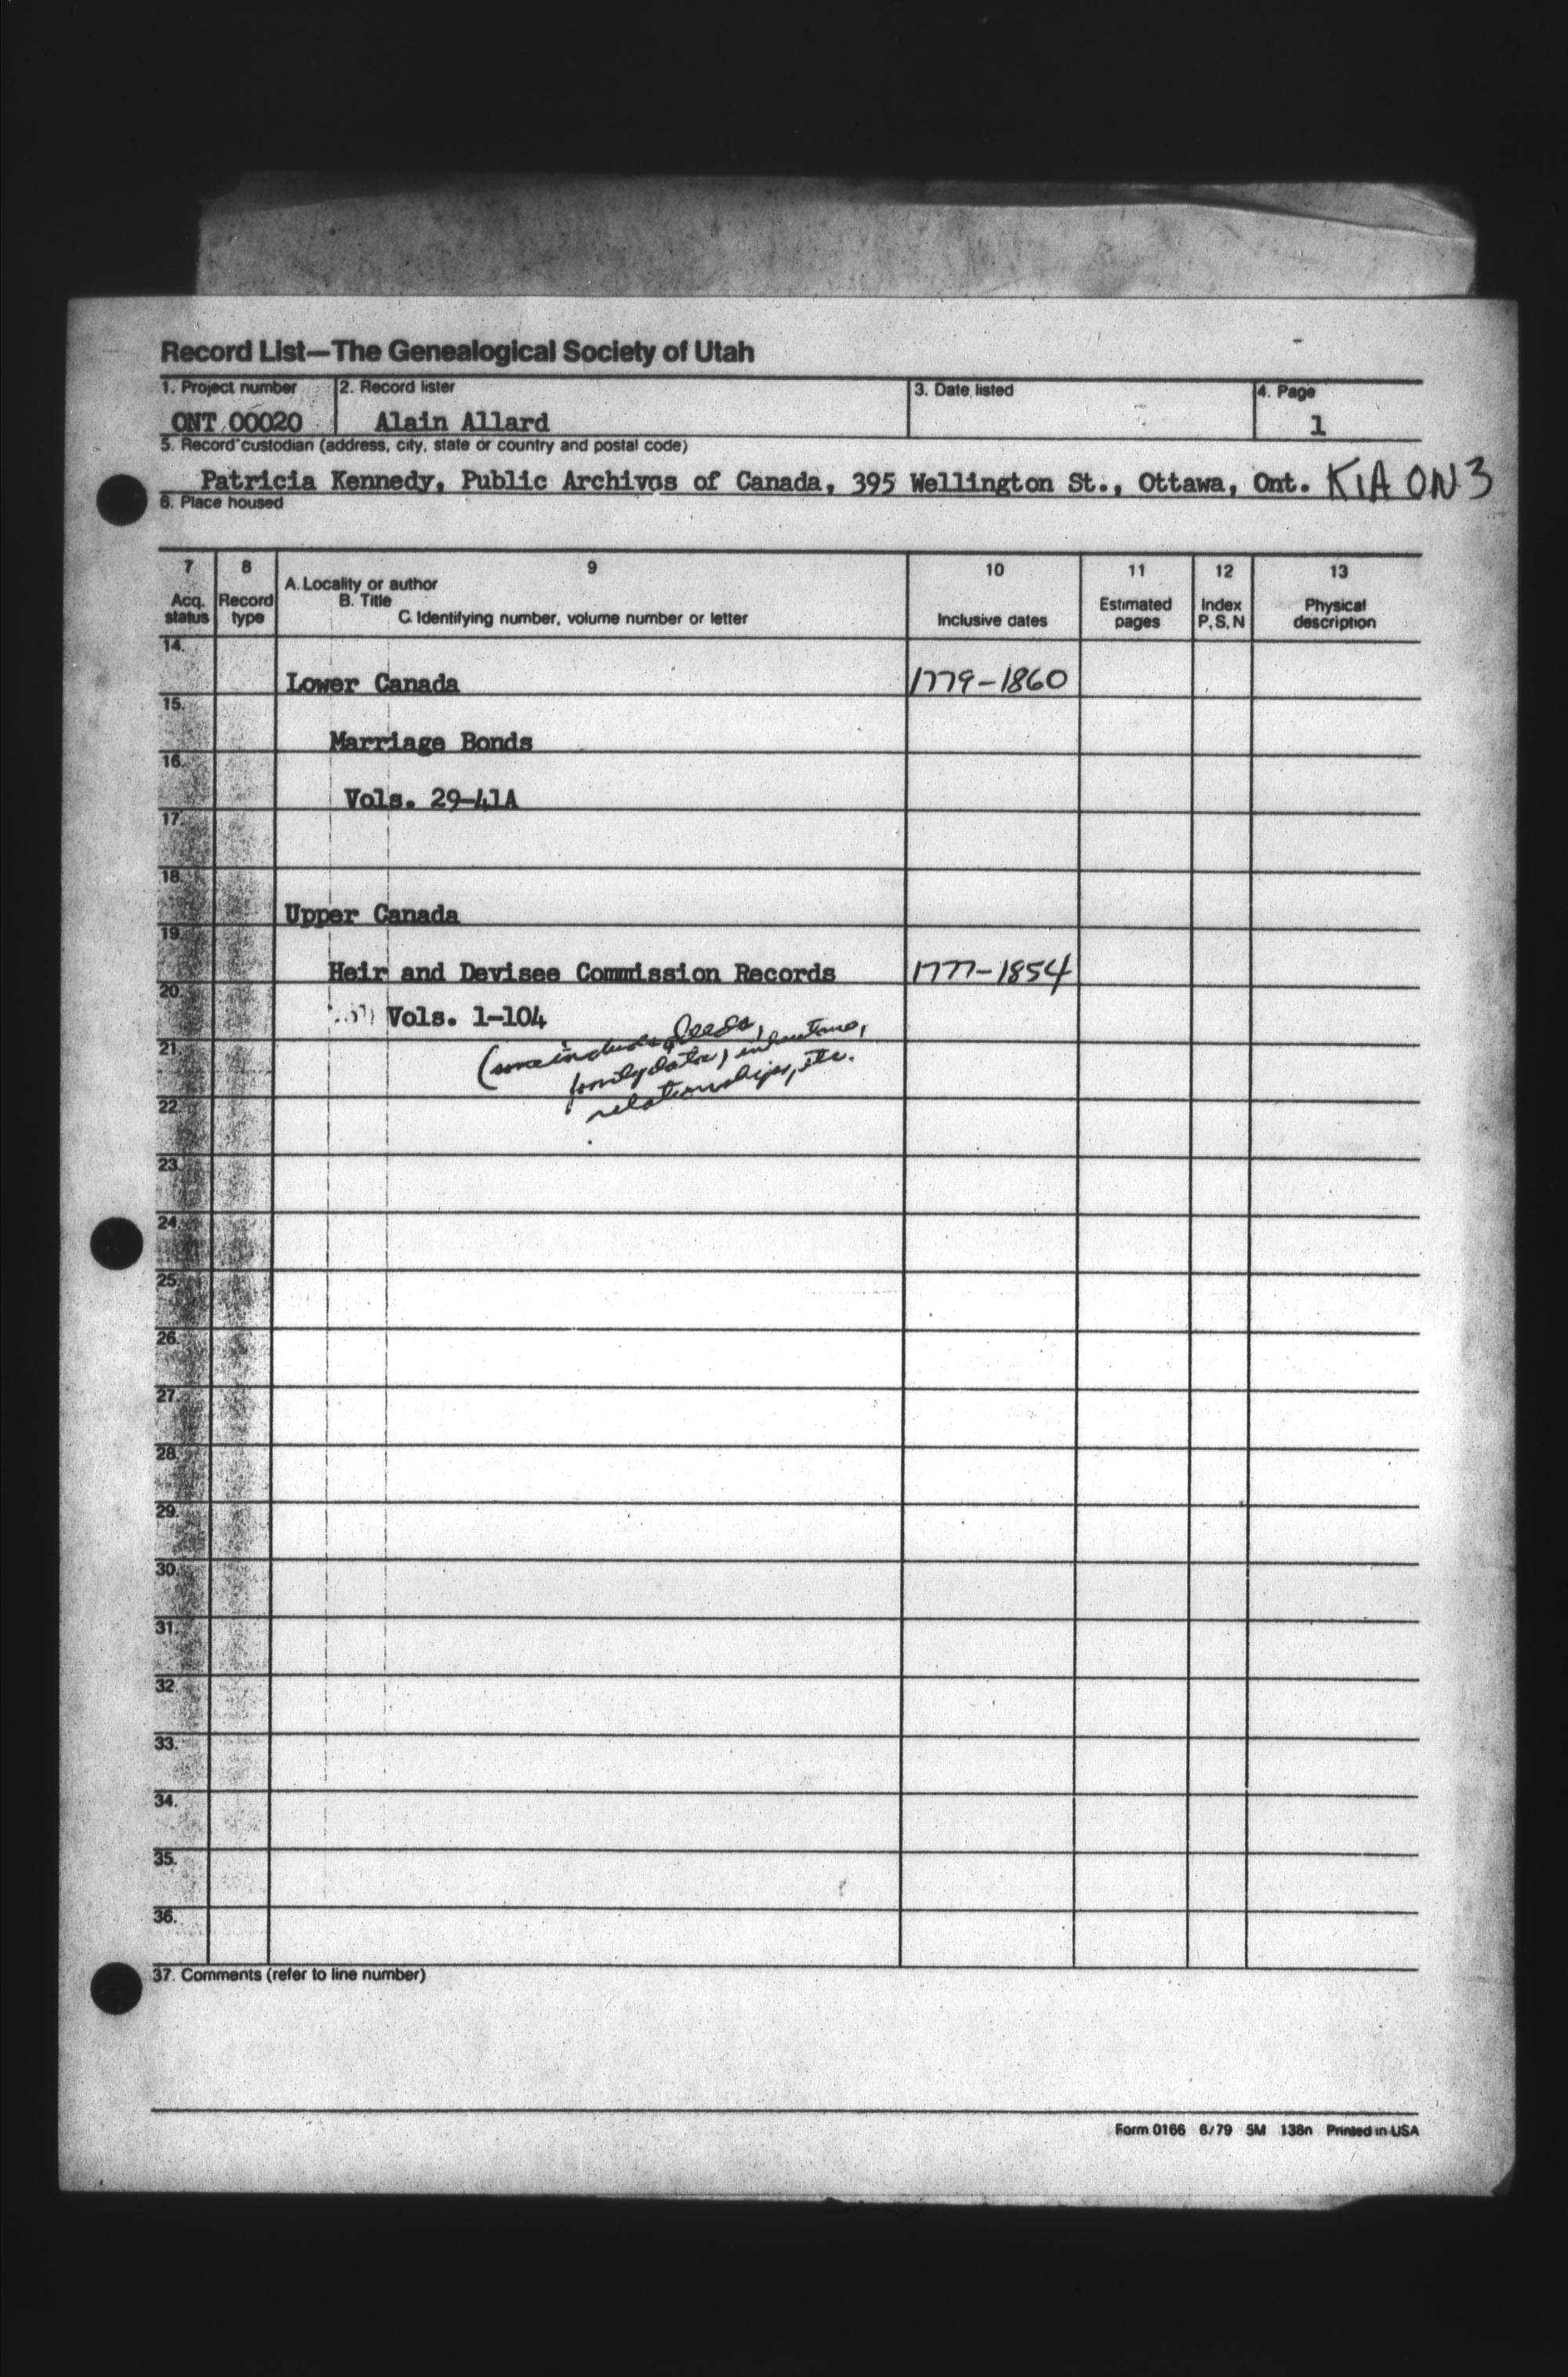 Record List—The Genealogical Society of Utah
1. Project number 2. Record lister 3. Date listed 4. Page
ONT 00020 Alain Allard 1
5. Record custodian (address, city, state or country and postal code)
Patricia Kennedy, Public Archives of Canada, 395 Wellington St., Ottawa, Ont. K1A 0N3
6. Place housed
7 8 9 10 11 12 13
A. Locality or author
Acq. Record B. Title Estimated Index Physical
status type C. Identifying number, volume number or letter Inclusive dates pages P, S, N description
14.
Lower Canada 1779-1860
15.
Marriage Bonds
16.
Vols. 29-41A
17.
18.
Upper Canada
19.
Heir and Devisee Commission Records 1777-1854
20.
Vols. 1-104
21.
(some include deeds,
family data,
relationships, etc.
22.
23.
24.
25.
26.
27.
28.
29.
30.
31.
32.
33.
34.
35.
36.
37. Comments (refer to line number)
Form 0166 6/79 5M 138n Printed in USA